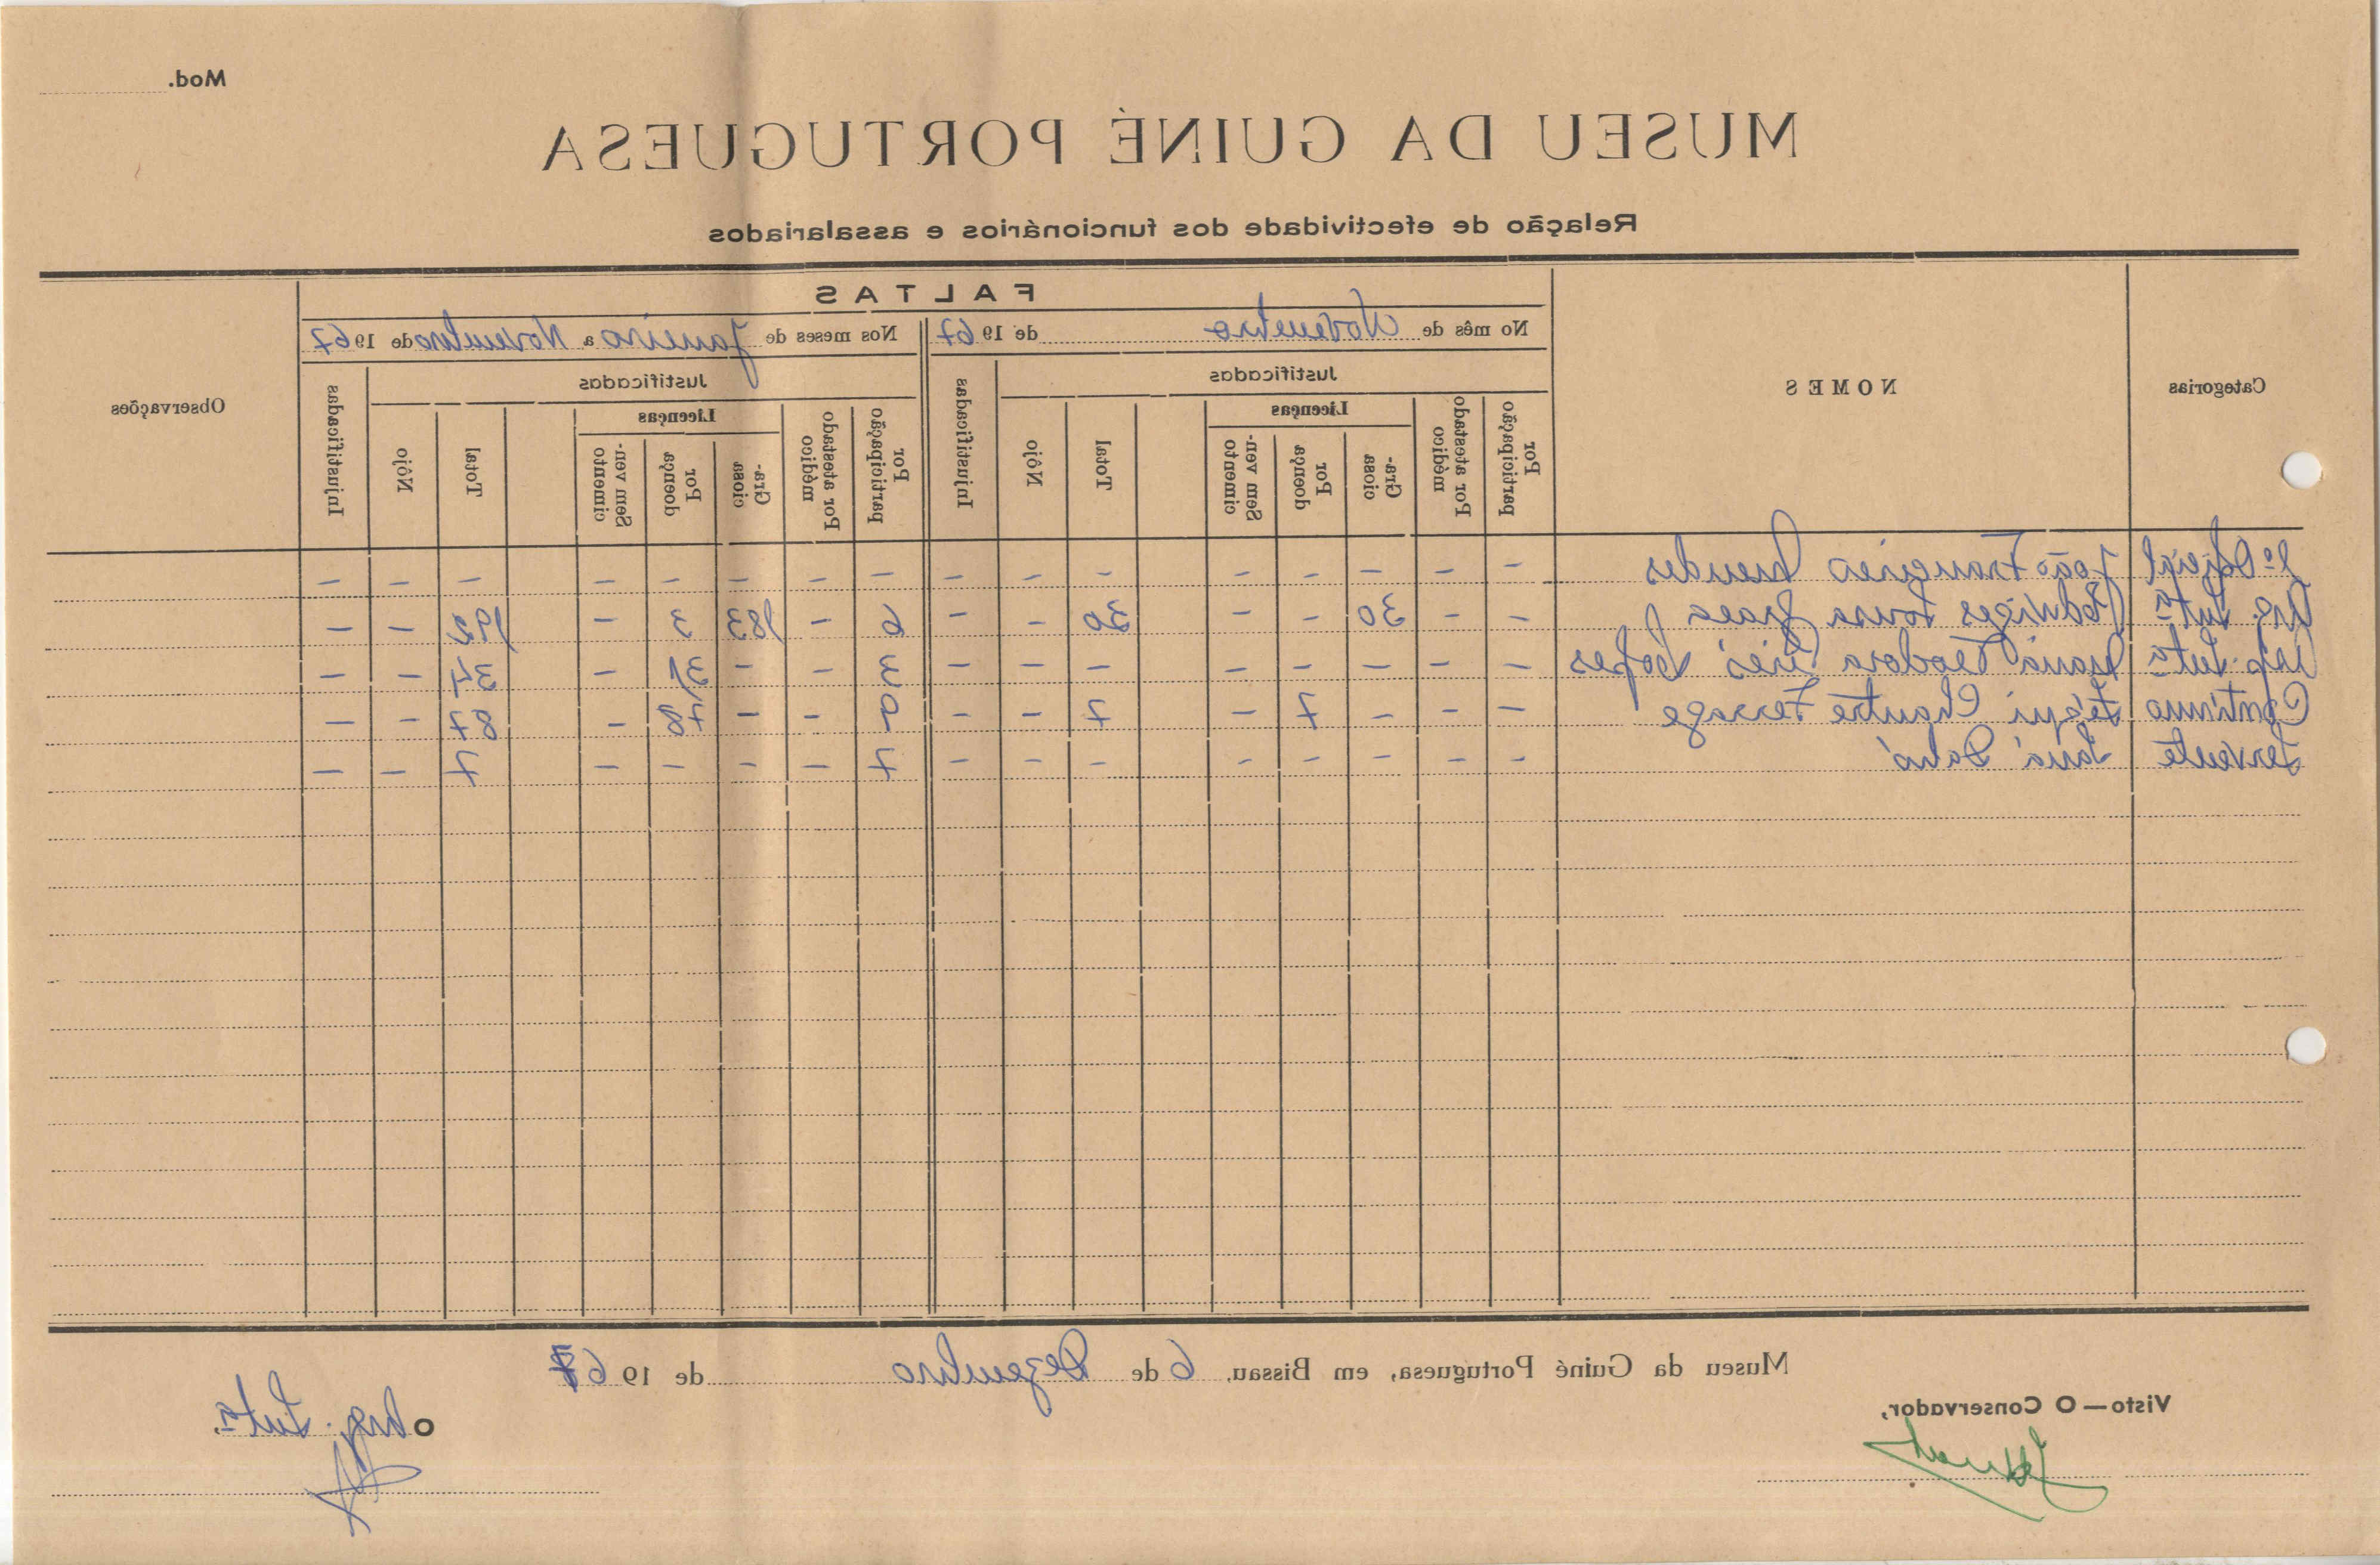 Mod.
MUSEU DA GUINÉ PORTUGUESA
Relação de efectividade dos funcionários e assalariados
Categorias
NOMES
FALTAS
No mês de Novembro de 1967
Nos meses de Janeiro a Novembro de 1967
Observações
Justificadas
Injustificadas
Justificadas
Injustificadas
Por participação
Por atestado médico
Licenças
Graciosa
Por doença
Sem vencimento
Total
Nôjo
Por participação
Por atestado médico
Licenças
Graciosa
Por doença
Sem vencimento
Total
Nôjo
João Francisco Mendes - - - - - - - - - - - - - - - -
Hedviges Sousa - - 30 - - 30 - - 6 - 183 3 - 192 - -
Maria Teodora Inês Lopes - - - - - - - - 3 - - 31 - 34 - -
Contínuo - - - 7 - 7 - - 9 - - 78 - 87 - -
Servente - - - - - - - - 7 - - - - 7 - -
Museu da Guiné Portuguesa, em Bissau, 6 de Dezembro de 1967
Visto—O Conservador,
O